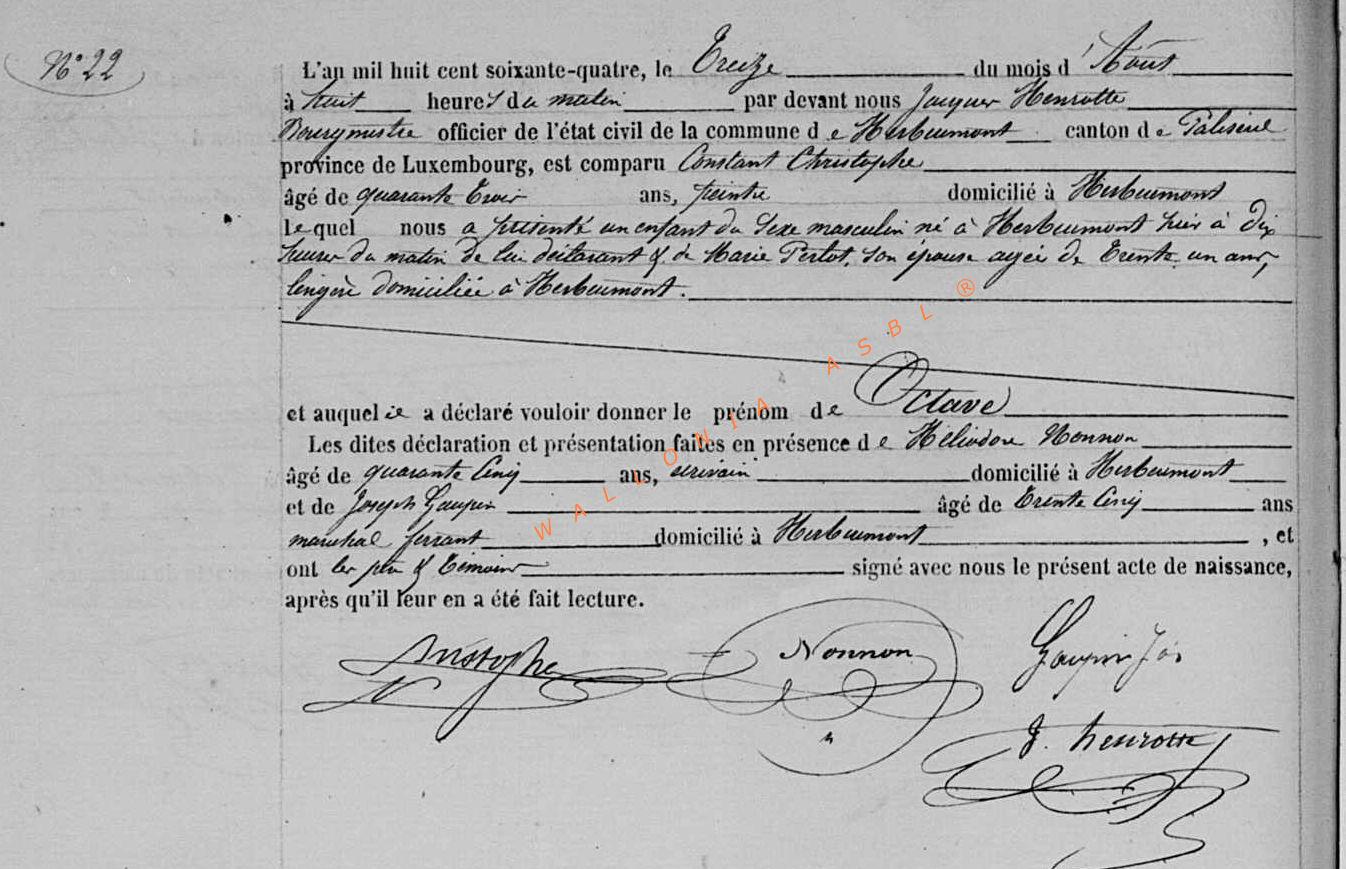 N° 22
L'an mil huit cent soixante-quatre, le Treize du mois d'Août
à huit heures du matin par devant nous Jacques Henrotte
Bourgmestre officier de l'état civil de la commune de Herbeumont canton de Paliseul
province de Luxembourg, est comparu Constant Christophe
âgé de quarante trois ans, peintre domicilié à Herbeumont
lequel nous a présenté un enfant du sexe masculin né à Herbeumont hier à dix
heures du matin de lui déclarant & de Marie Perlot, son épouse agée de Trente un ans,
lingère domiciliée à Herbeumont.
et auquel il a déclaré vouloir donner le prénom de Octave
Les dites déclaration et présentation faites en présence de Héliodore Nonnon
âgé de quarante cinq ans, écrivain domicilié à Herbeumont
et de Joseph Gaupin âgé de Trente cinq ans
marechal ferrant domicilié à Herbeumont, et
ont les père & témoins signé avec nous le présent acte de naissance,
après qu'il leur en a été fait lecture.
Christophe Nonnon Gaupin Jos
J. henrotte
WALLONIA ASBL ®